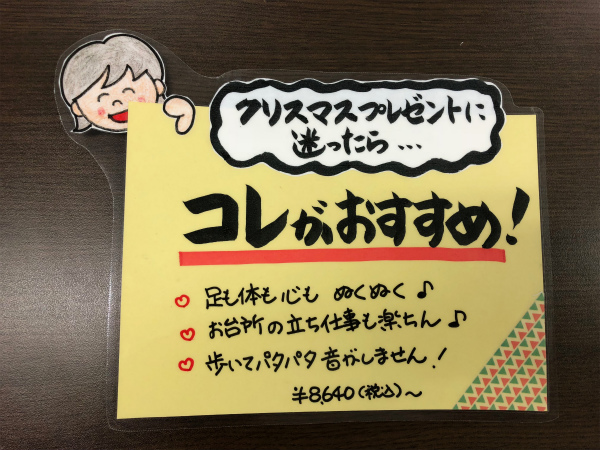 クリスマスプレゼントに
迷ったら…
コレがおすすめ!
足も体も心も ぬくぬく♪
お台所の立ち仕事も楽ちん♪
歩いてパタパタ音がしません!
¥8,640(税込)~